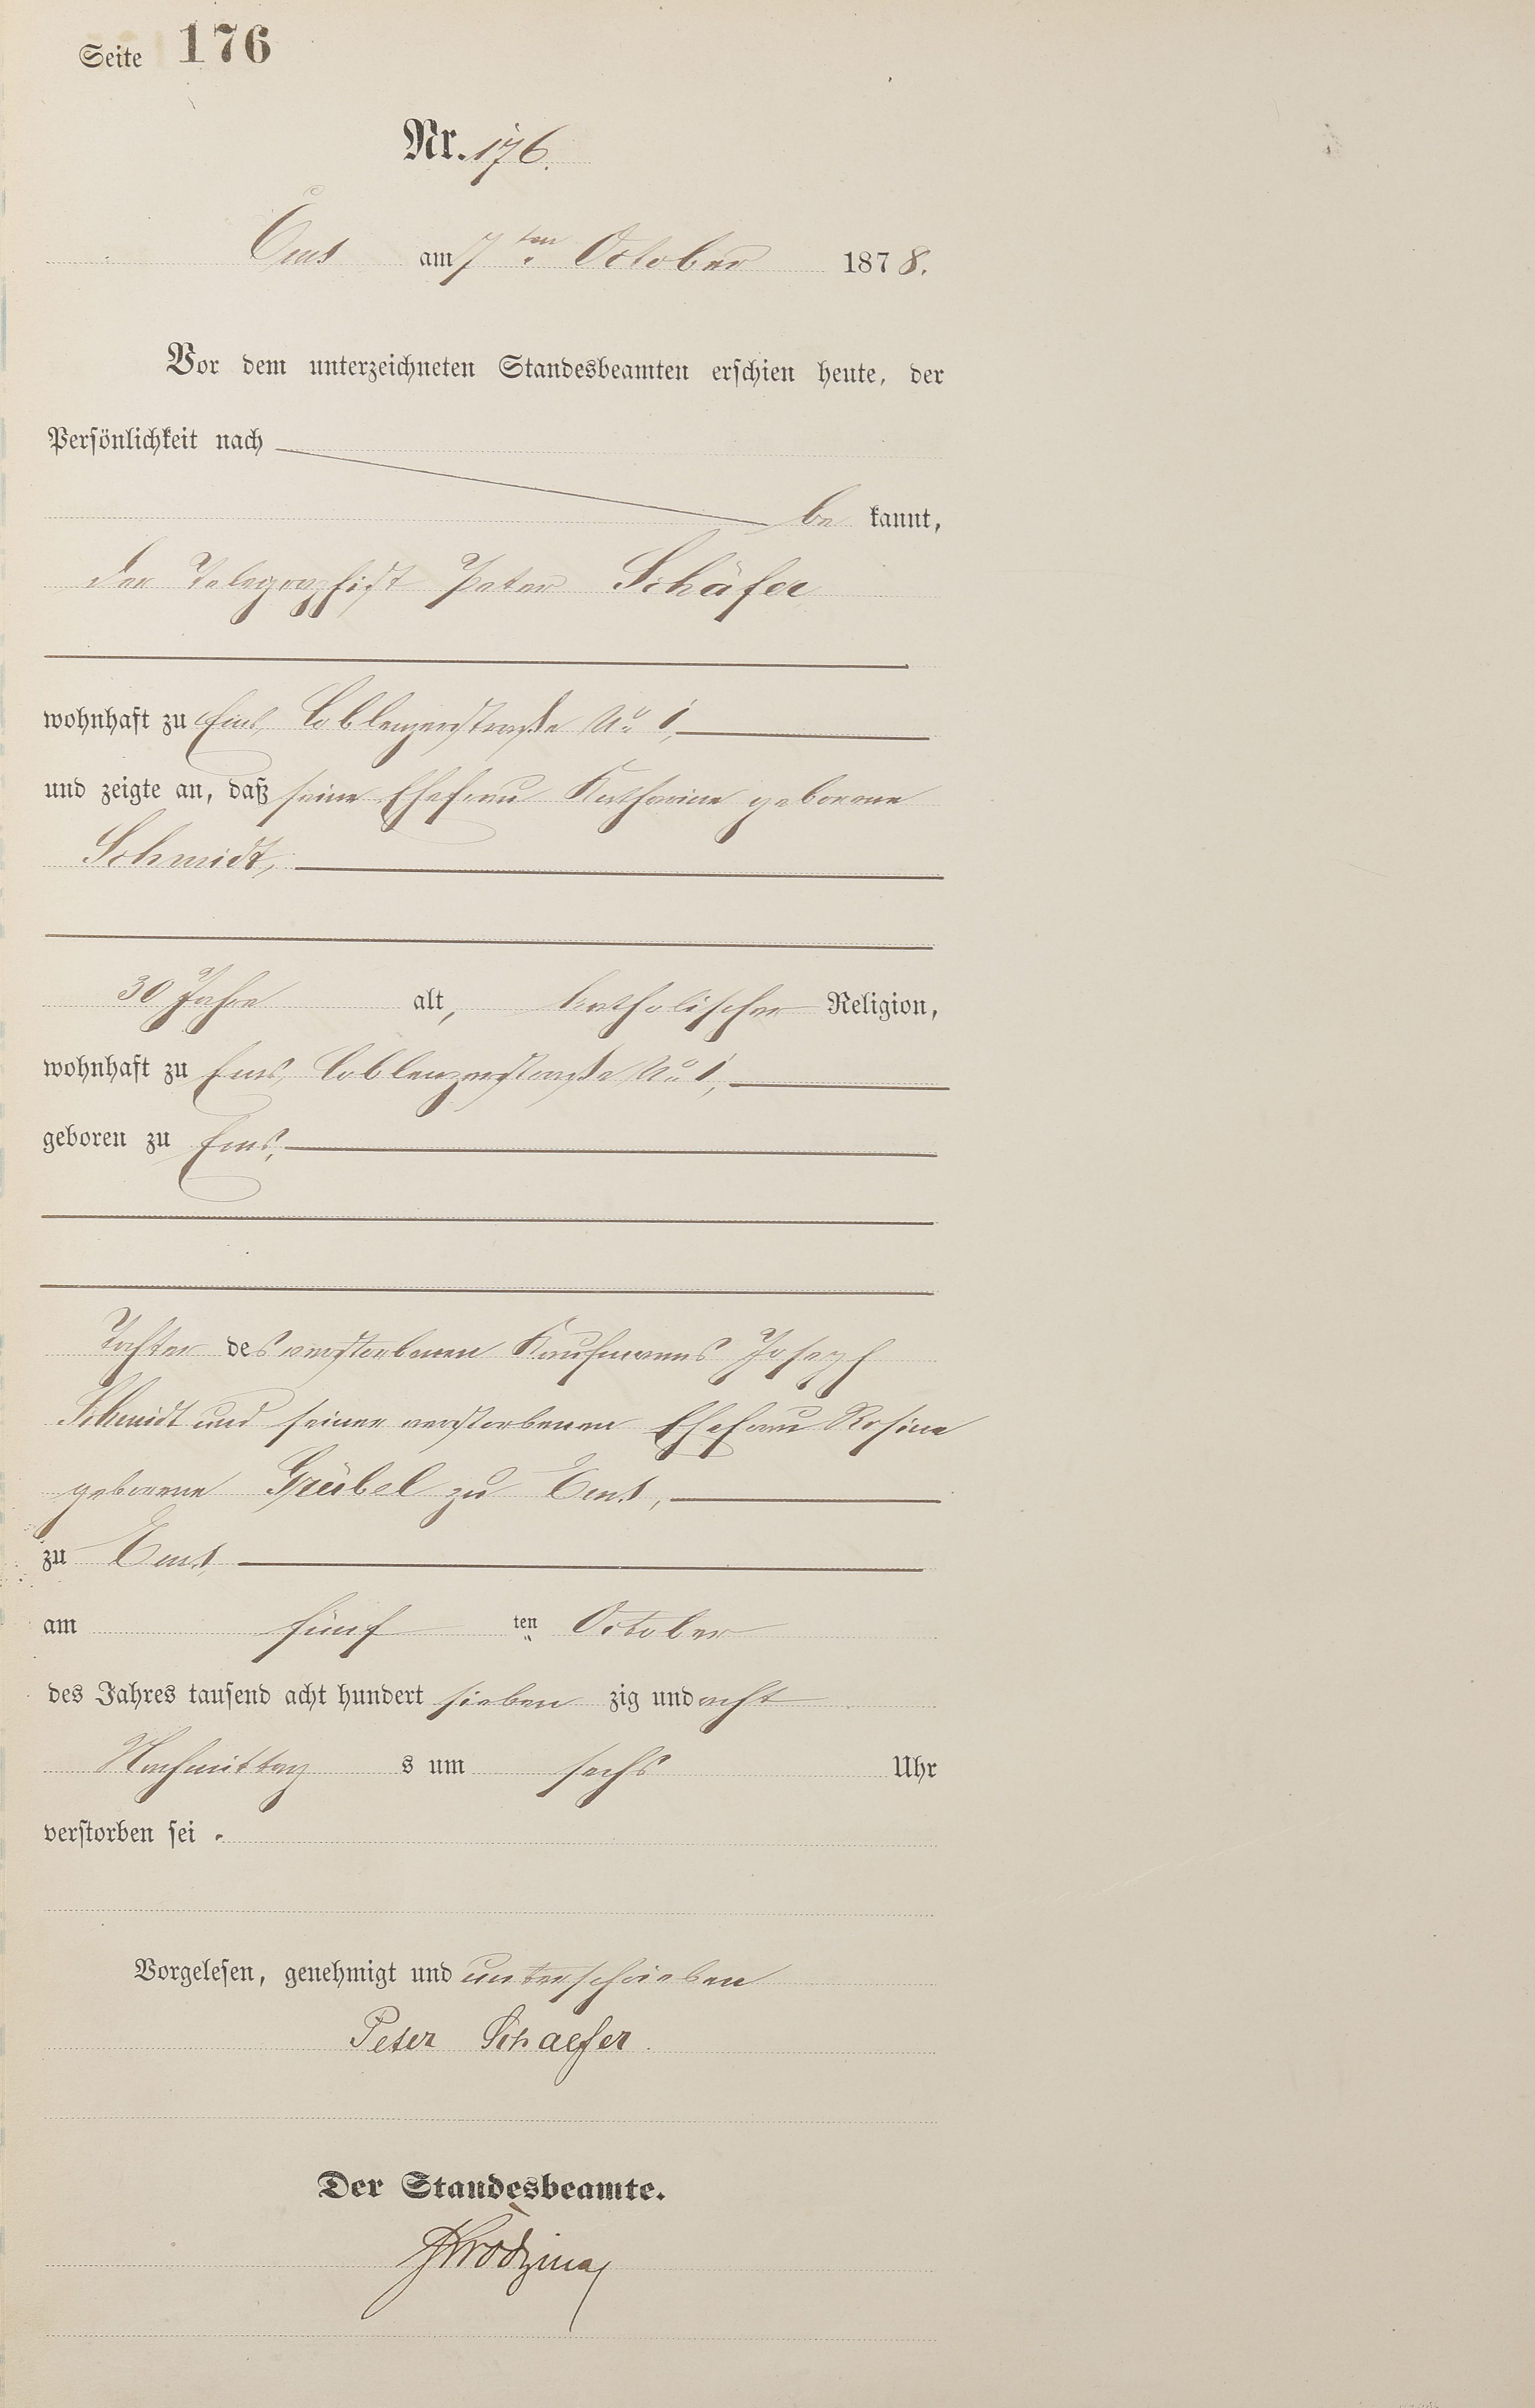 Seite 176
Nr. 176.
Ems am 7ten October 1878.
Vor dem unterzeichneten Standesbeamten erschien heute, der
Persönlichkeit nach
be kannt,
der Telegraphist Peter Schäfer
wohnhaft zu Ems, Coblenzerstraße No 1,
und zeigte an, daß seine Ehefrau Katharine geborene
Schmidt,
30 Jahre alt, katholischer Religion,
wohnhaft zu Ems, Coblenzerstraße No 1,
geboren zu Ems,
Tochter des verstorbenen Kaufmanns Joseph
Schmidt und seiner verstorbenen Ehefrau Rosine
geborene Grübel zu Ems,
zu Ems,
am fünf ten October
des Jahres tausend acht hundert sieben zig und acht
Nachmittag s um sechs Uhr
verstorben sei.
Vorgelesen, genehmigt und unterschrieben
Peter Schaefer.
Der Standesbeamte.